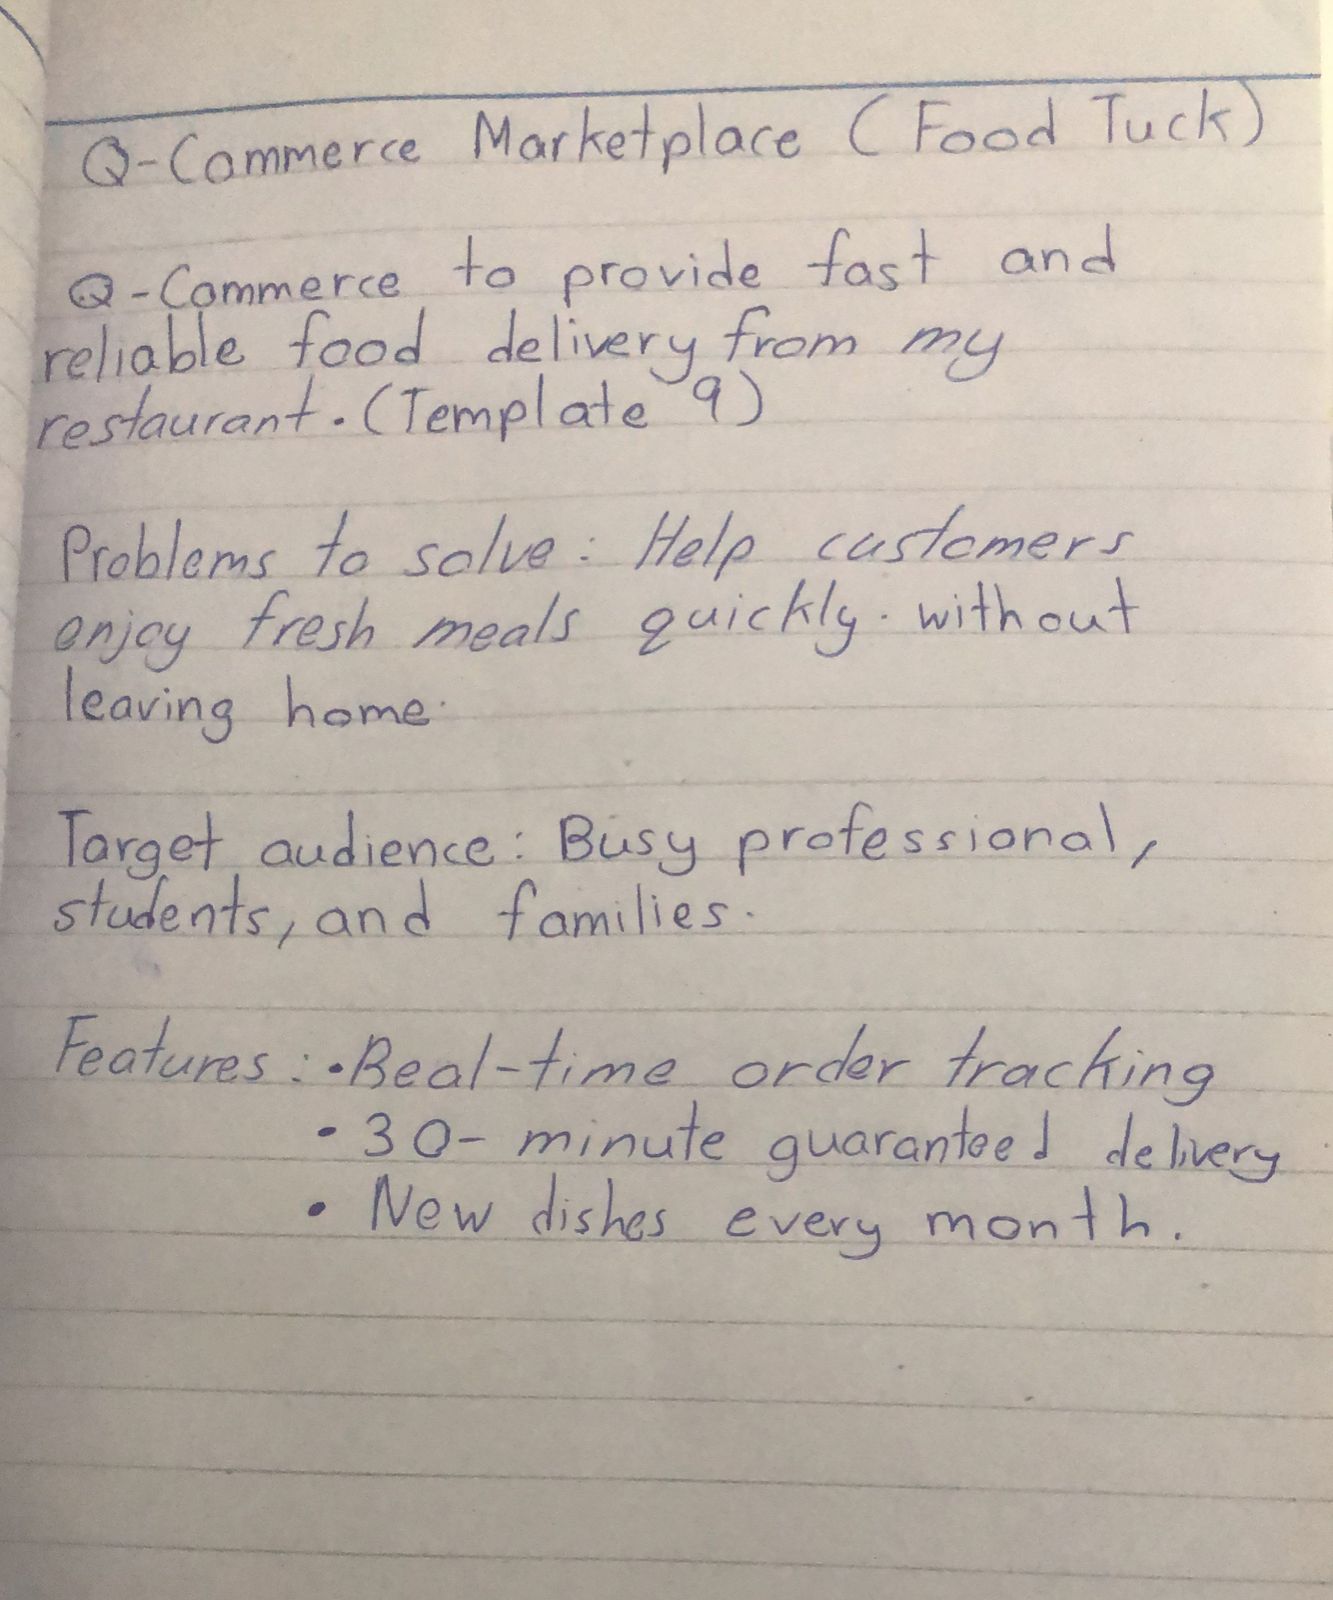 Q-Commerce Marketplace (Food Tuck)
Q-Commerce to provide fast and
reliable food delivery from my
restaurant. (Template 9)
Problems to solve: Help customers
enjoy fresh meals quickly. without
leaving home.
Target audience: Busy professional,
students, and families.
Features: • Real-time order tracking
• 30-minute guaranteed delivery
• New dishes every month.